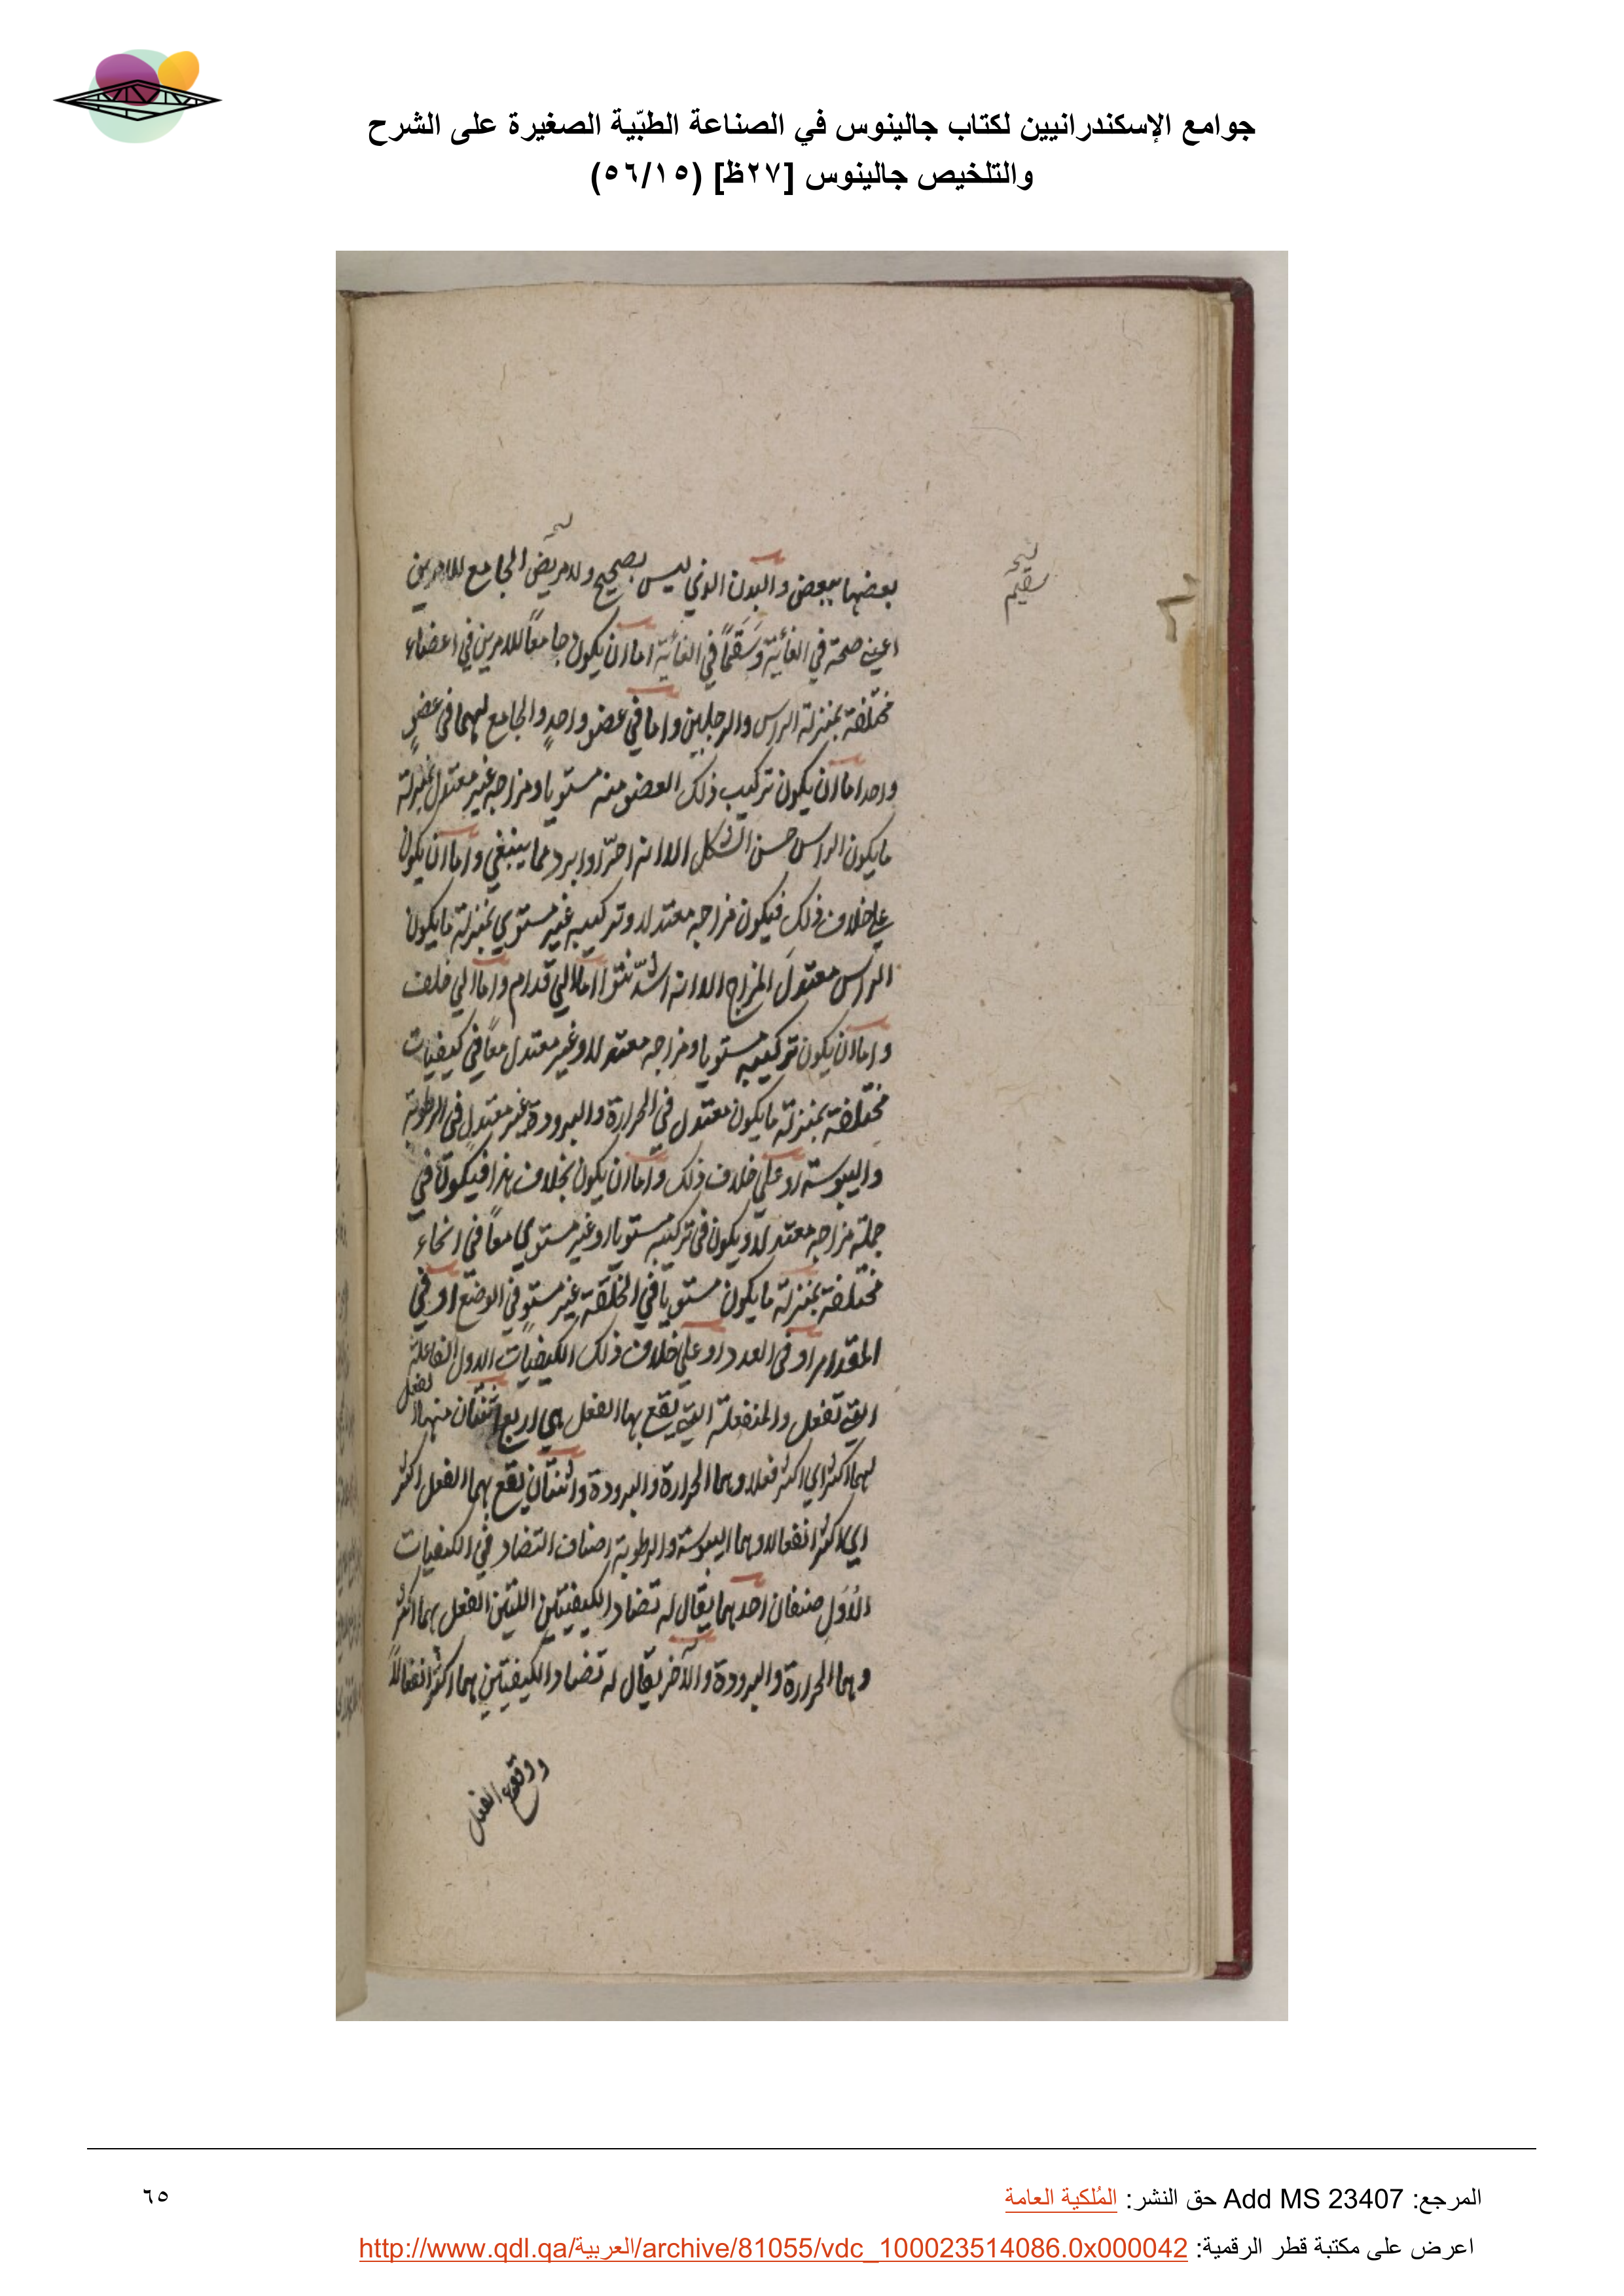 جوامع الإسكندرانيين لكتاب جالينوس في الصناعة الطبّية الصغيرة على الشرح
والتلخيص جالينوس [٢٧ظ] (٥٦/١٥)
سقيم
بعضها ببعض والبدن الذي ليس بصحيح ولا مريض الجامع للامرين
اعني صحة في الغائية وسَقَمًا في الغائية اما ان يكون جامعًا للامرين في اعضاء
مختلفة بمنزلة الراس والرجلين واما في عضو واحدٍ والجامع لهما في عضوٍ
واحد اما ان يكون تركيب ذلك العضو منه مستويا ومزاجه غير معتدل بمنزلة
ما يكون الراس حسن الشكل الا انه احرّ او ابرد مما ينبغي واما ان يكون
علي خلاف ذلك فيكون مزاجه معتدلا وتركيبه غير مستوي بمنزلة ما يكون
الراس معتدلَ المزاج الا انه اشدّ نتوًا اما الي قدام واما الي خلف
واما ان يكون تركيبه مستويا ومزاجه معتدلا وغير معتدل معًا في كيفيات
مختلفة بمنزلة ما يكون معتدل في الحرارة والبرودة غير معتدلٍ في الرطوبة
واليبوسة او علي خلاف ذلك واما ان يكون بخلاف هذا فيكون في
جملة مزاجه معتدلا ويكون في تركيبه مستويا او غير مستوي معًا في انحاء
مختلفة بمنزلة ما يكون مستويًا في الخلقة غير مستوٍ في الوضع او في
المقدار او في العدد او علي خلاف ذلك الكيفيات الاول الفاعلة
التي تفعل والمنفعلة التي يقع بها الفعل هي اربع اثنتان منها الفعل
لهما اكثر اي اكثر فعلا وهما الحرارة والبرودة واثنتان يقع بهما الفعل اكثر
اي اكثر انفعالا وهما اليبوسة والرطوبة اصناف التضاد في الكيفيات
الأُوَلِ صنفان احدهما يقال له تضاد الكيفيتين اللتين الفعل بهما اكثر
وهما الحرارة والبرودة والآخر يقال له تضاد الكيفيتين هما اكثر انفعالاً
ووقوع الفعل
المرجع: Add MS 23407 حق النشر: المُلكية العامة
٦٥
اعرض على مكتبة قطر الرقمية: http://www.qdl.qa/العربية/archive/81055/vdc_100023514086.0x000042